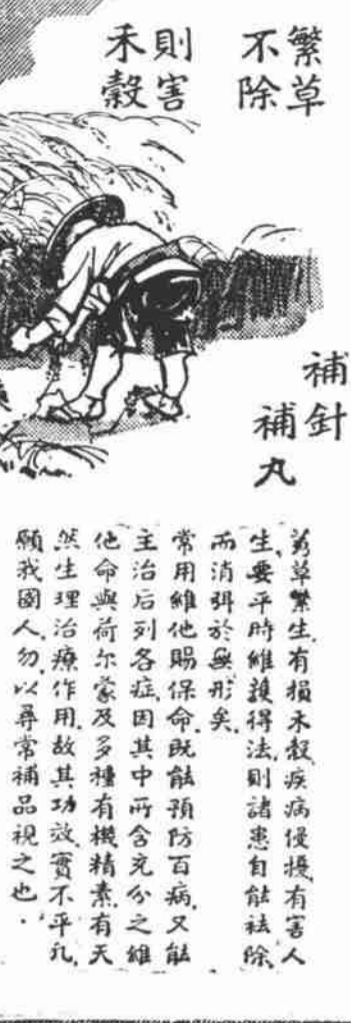 繁草
不除
則害
禾穀
補針
補丸
蔓草繁生、有損禾穀、疾病侵擾、有害人
生、要平時維護得法、則諸患自能祛除、
而消弭於無形矣、
常用維他賜保命、既能預防百病、又能
主治后列各症、因其中所含充分之維
他命與荷尔蒙及多種有機精素、有天
然生理治療作用、故其功效、實不平凡、
願我國人、勿以尋常補品視之也．